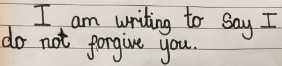 I am writing to say I
do not forgive you.